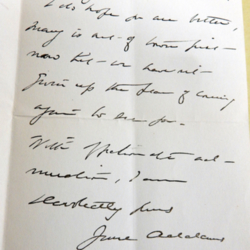 I do hope you are better,
Mary is out of town just
now but we have not
given up the plan of coming
again to see you.
With affectionate ad-
miration, I am
devotedly yours
Jane Addams